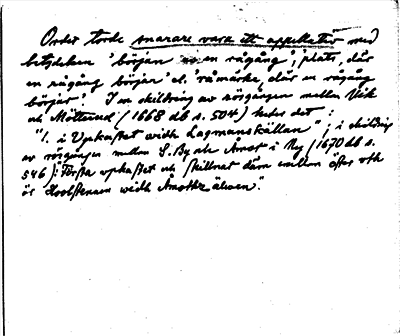 Ordet torde snarare vara ett appellativ med
betydelsen 'början av en rågång', 'plats, där
en rågång börjar' el. 'råmärke, där en rågång
börjar'. I en skildring av rörgången mellan Vik
och (1668 db s. 504) heter det:
"1. i Upkastet widh Lagmanskällan"; i skildring
av rörgången mellan S. By och i Ny (1670 db s.
546): "Första upkastet och skillnat däm emillan öster uth
är widh älwen".